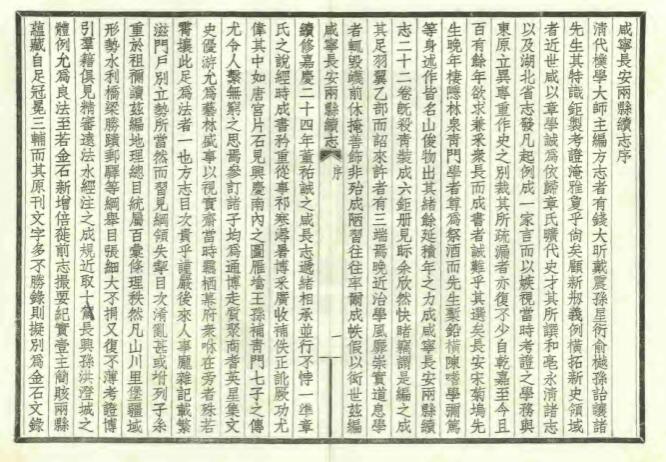 咸寧長安兩縣續志序
清代樸學大師主編方志者有錢大昕戴震孫星衍俞樾孫詒讓諸
先生其特識鉅製考證淹雅敻乎尚矣顧新剏義例橫拓新史領域
者近世咸以章學誠為依歸章氏曠代史才其所譔和亳永清諸志
以及湖北省志發凡起例成一家言而以嫉視當時考證之學務與
東原立異專重作史之別裁其所疏編者亦復不少自乾嘉至今且
百有餘年欲求兼采衆長而成書者誠難乎其選矣長安宋菊塢先
生晚年棲隱林泉青門學者尊為祭酒而先生槧鉛橫陳嗜學彌篤
等身述作皆名山俊物出其緒餘延積年之力成咸寧長安兩縣續
志二十二卷旣殺青裝成六鉅册見眎余欣然快睹竊謂是編之成
其足羽翼乙部而詔來許者有三端焉晚近治學風靡崇實道息學
者輒毀嫮前休掩善飾非殆成陋習往往率爾成帙假以衒世茲編
咸寧長安兩縣續志 序 一
續修嘉慶二十四年董祐誠之咸長志遞緒相承並行不悖一準章
氏之說經時成書矜重從事祁寒溽暑博采廣收補佚正訛厥功尤
偉其中如唐宮片石見興慶南內之圖雁墖王孫補青門七子之傳
尤令人繫無窮之思焉參訂諸子均為通博走質聚商耆英星集文
史優游尤為藝林盛事以視實齋當時羈栖幕府衆咻在旁者殊若
霄壤此足為法者一也方志目次貴乎謹嚴後來人事龐雜記載繁
滋門戶別立勢所當然而習見綱領失挈目次淆亂甚或坿列子系
重於祖禰讀茲編地理總目統屬百彙條理秩然凡山川里堡疆域
形勢水利橋梁勝蹟郵驛等綱舉目張細大不捐又復不薄考證博
引羣籍俱見精審遠法水經注之成規近取十篇長興孫洪澄城之
體例尤為良法至若金石新增倍蓰前志撮要紀實壹主簡賅兩縣
蘊藏自足冠冕三輔而其原刊文字多不勝錄則擬別為金石文錄